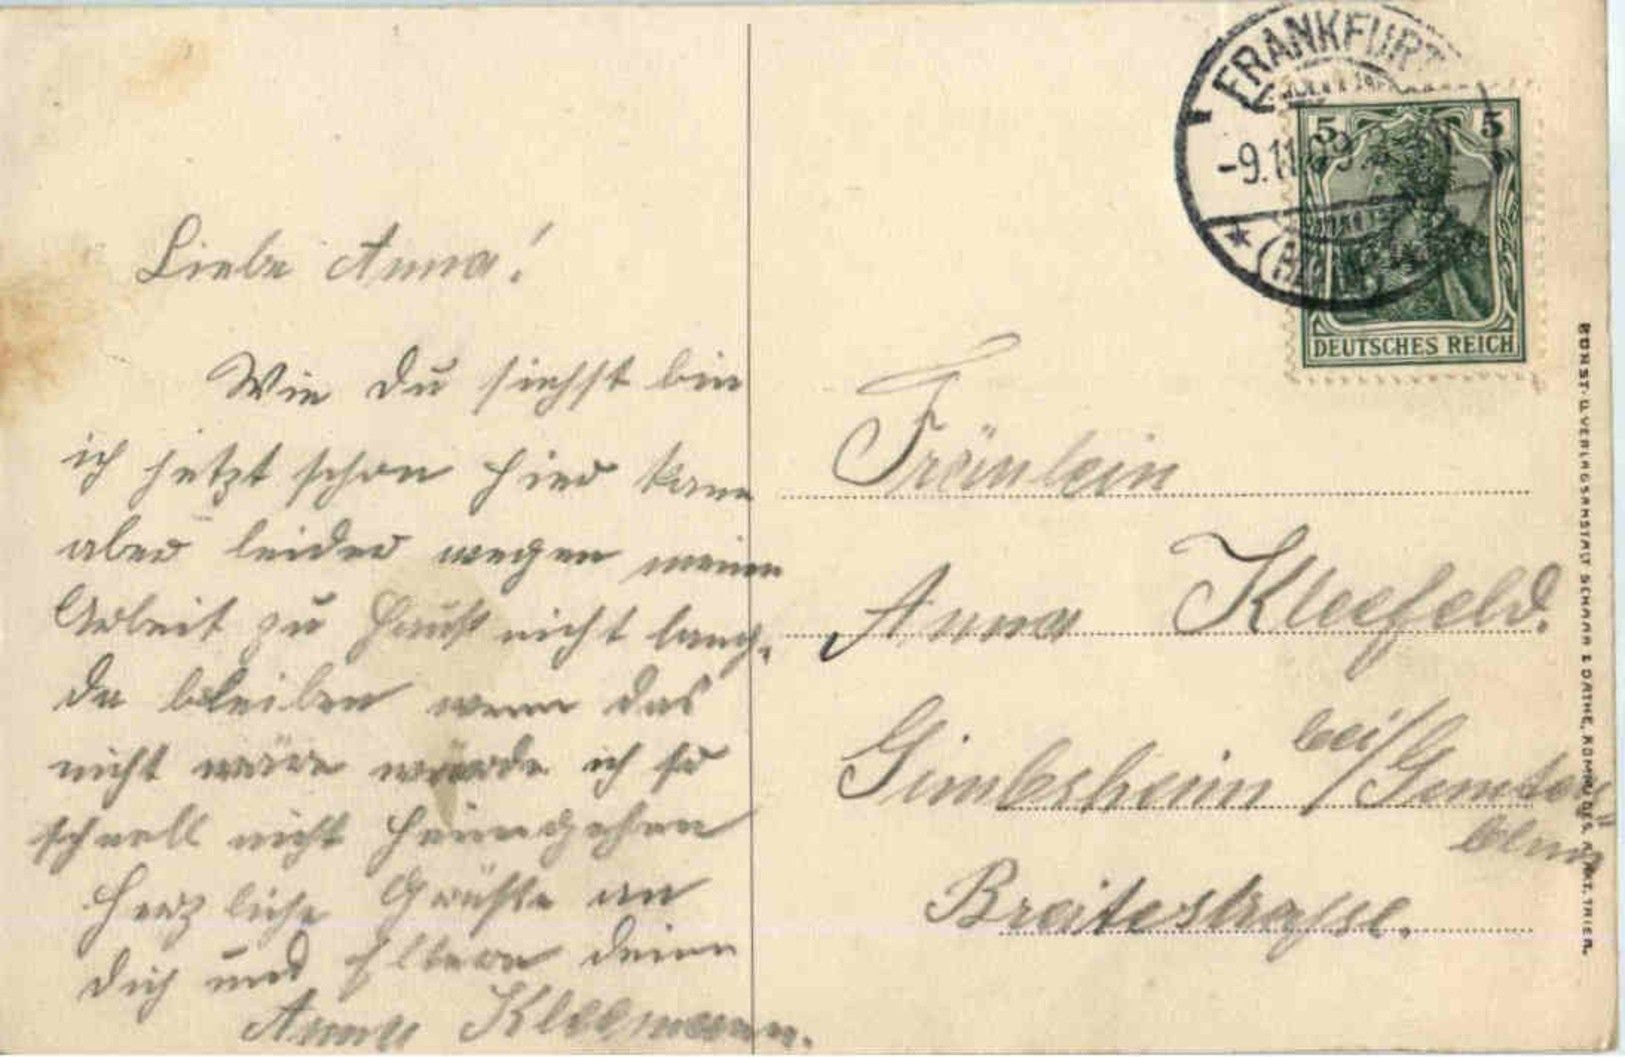 Liebe Anna!
Wie du siehst bin
ich jetzt schon hier kann
aber leider wegen meiner
Arbeit zu Hauß nicht lang,
da bleiben wenn das
nicht wäre würde ich so
schnell nicht heimgehen
Herzliche Grüße an
dich und Eltern deine
Anna Kleemann.
FRANKFURT
-9.11.
5 5
DEUTSCHES REICH
Fräulein
Anna Kleefeld.
Gimbsheim bei/
Breitestrasse.
KUNST- U. VERLAGSANSTALT SCHAAR & DATHE, KOMM.-GES. A. AKT. TRIER.